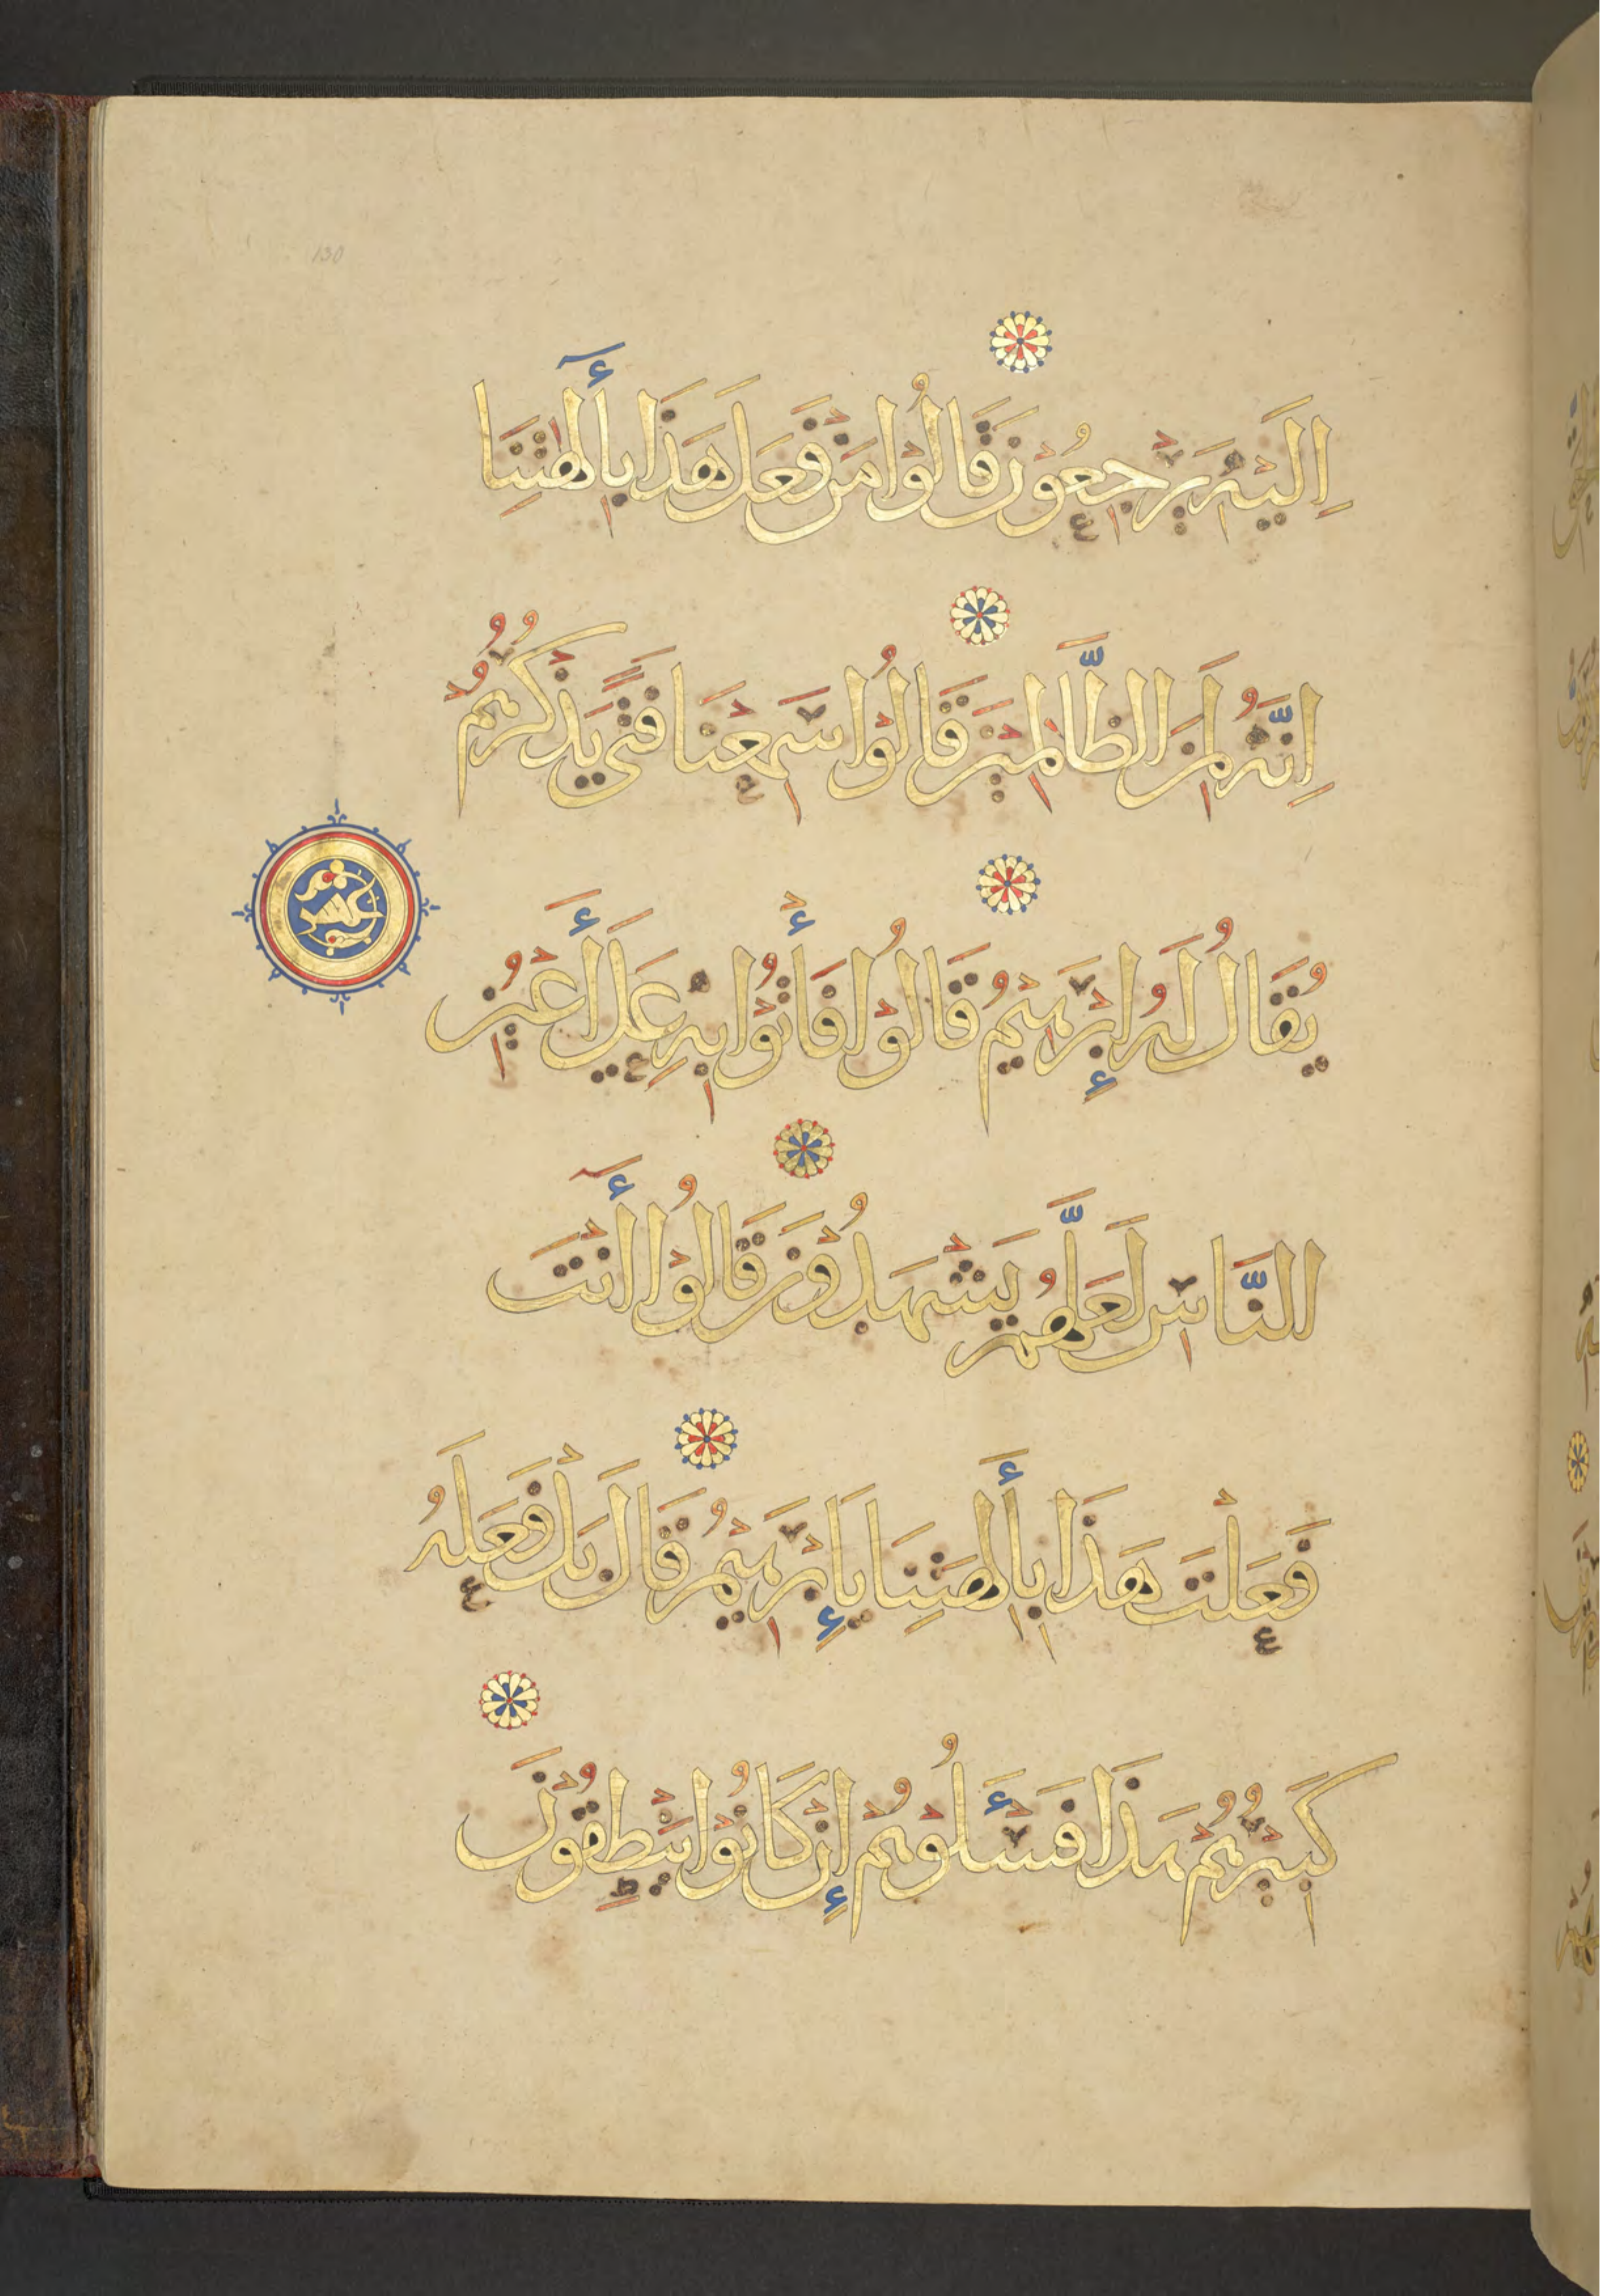 130
اِلَيْهِ يَرْجِعُوْنَ قَالُوْا مَنْ فَعَلَ هَذَا بِأَلِهَتِنَا
اِنَّهُ لَمِنَ الظَّالِمِيْنَ قَالُوْا سَمِعْنَا فَتًى يَذْكُرُهُمْ
يُقَالُ لَهُ إِبْرَهِيْمُ قَالُوْا فَأْتُوْا بِهِ عَلَى أَعْيُنِ
عشر
النَّاسِ لَعَلَّهُمْ يَشْهَدُوْنَ قَالُوْا أَنْتَ
فَعَلْتَ هَذَا بِأَلِهَتِنَا يَا إِبْرَهِيْمُ قَالَ بَلْ فَعَلَهُ
كَبِيْرُهُمْ هَذَا فَسْـَٔلُوْهُمْ إِنْ كَانُوْا يَنْطِقُوْنَ